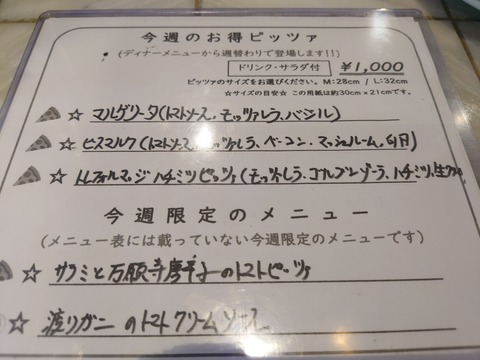 今週のお得ピッツァ
(ディナーメニューから週替わりで登場します!!)
ドリンク・サラダ付 ¥1,000
ピッツァのサイズをお選びください。M:28cm / L:32cm
☆サイズの目安☆ この用紙は約30cm×21cmです。
☆ マルゲリータ(トマトソース、モッツァレラ、バジル)
☆ ビスマルク(トマトソース、モッツァレラ、ベーコン、マッシュルーム、卵)
☆ トレフォルマッジハチミツピッツァ(モッツァレラ、ゴルゴンゾーラ、ハチミツ、生クリーム
今週限定のメニュー
(メニュー表には載っていない今週限定のメニューです)
☆ サラミと万願寺唐辛子のトマトピッツァ
☆ 渡りガニのトマトクリームソース